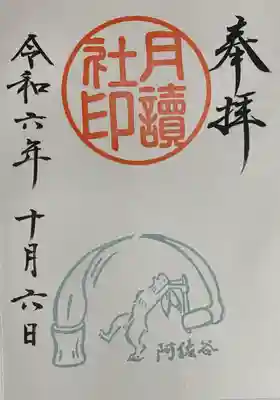 奉拝
月讀
社印
令和六年 十月六日
阿佐谷